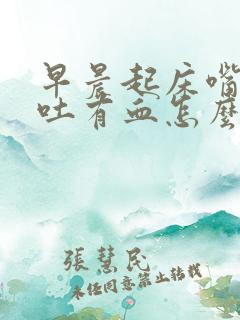 早晨起床嘴
吐有血怎麼
張慧民
未经同意禁止转载